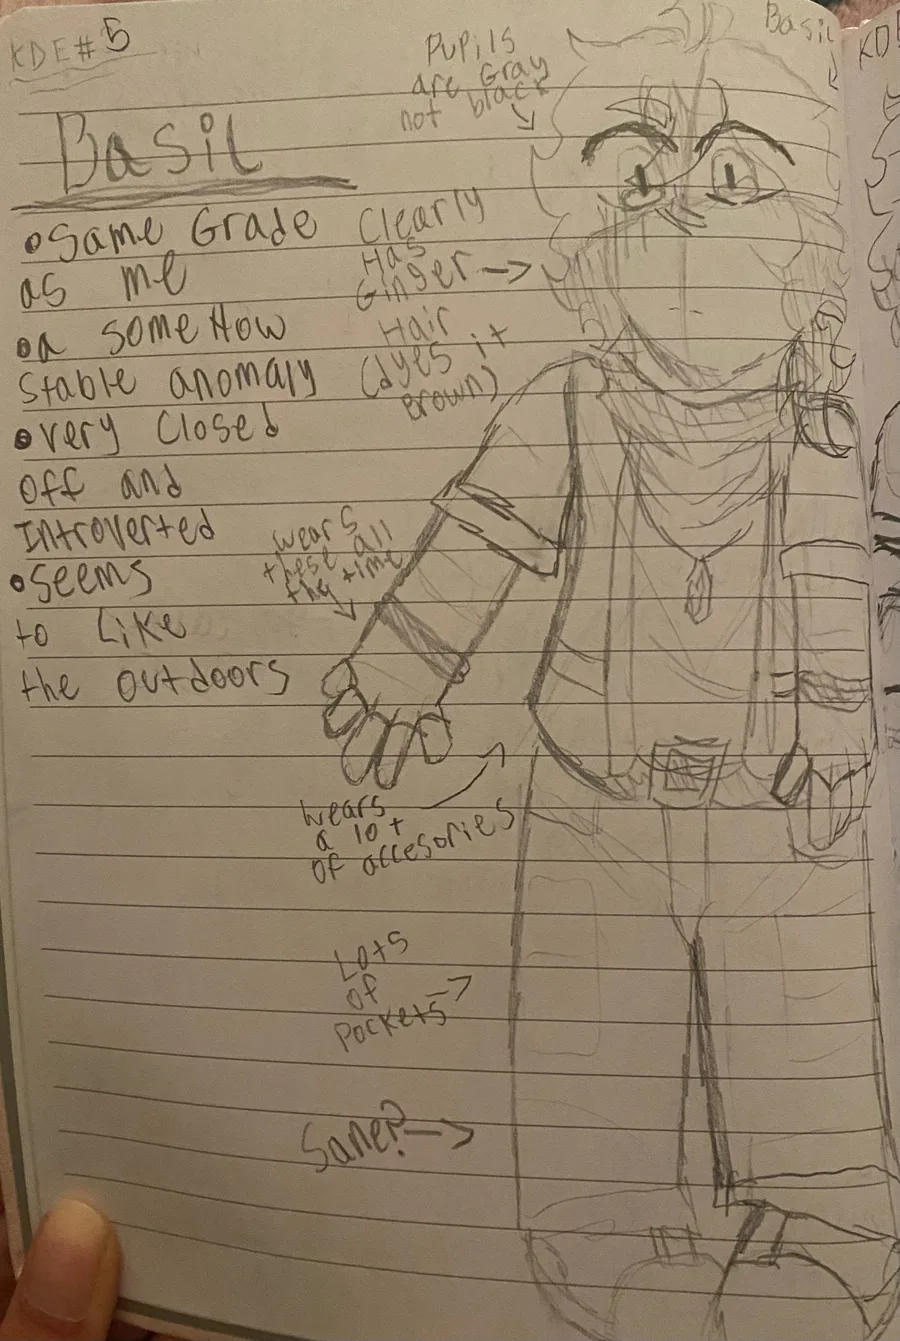 KDE#5
Basil
•Same Grade
as me
•a someHow
stable anomaly
•very Closed
off and
Introverted
•Seems
to Like
the outdoors
Pupils
are Gray
not black
Clearly
Has
Ginger
Hair
(dyes it
Brown)
wears
these all
the time
wears
a 10+
of accesories
Lots
of
Pockets
Sane?
Basil
KD